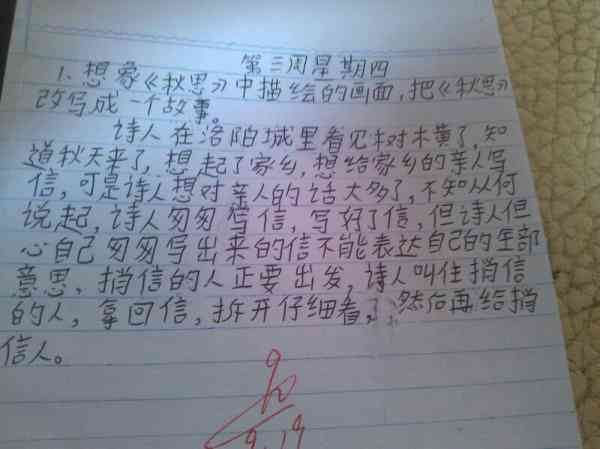 第三周星期四
1、想象《秋思》中描绘的画面,把《秋思》
改写成一个故事。
诗人在洛阳城里看见树木黄了,知
道秋天来了,想起了家乡,想给家乡的亲人写
信,可是诗人想对亲人的话太多了,不知从何
说起,诗人匆匆写信,写好了信,但诗人但
心自己匆匆写出来的信不能表达自己的全部
意思,捎信的人正要出发,诗人叫住捎信
的人,拿回信,拆开仔细看,然后再给捎
信人。
9.19